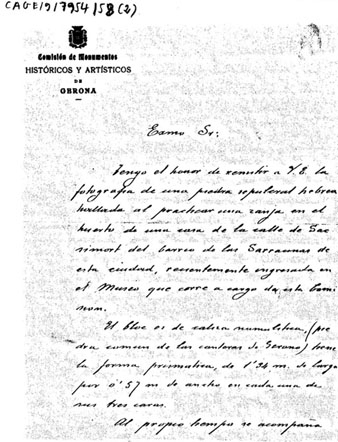 CAGE/9/7954/58(2)
Comisión de Monumentos
HISTÓRICOS Y ARTÍSTICOS
DE
GERONA
Exmo Sr:
Tengo el honor de remitir a V.E. la
fotografia de una piedra sepulcral hebrea
hallada al practicar una zanja en el
huerto de una casa de la calle de
del barrio de las Sarracinas de
esta ciudad, recientemente ingresada en
el Museo que corre a cargo de esta Comi
sion.
El bloc es de caliza numulitica, (pie
dra comun de las canteras de Gerona) tiene
la forma prismatica, de 1'34 m. de largo
por 0'57 m. de ancho en cada una de
sus tres caras.
Al propio tiempo se acompaña